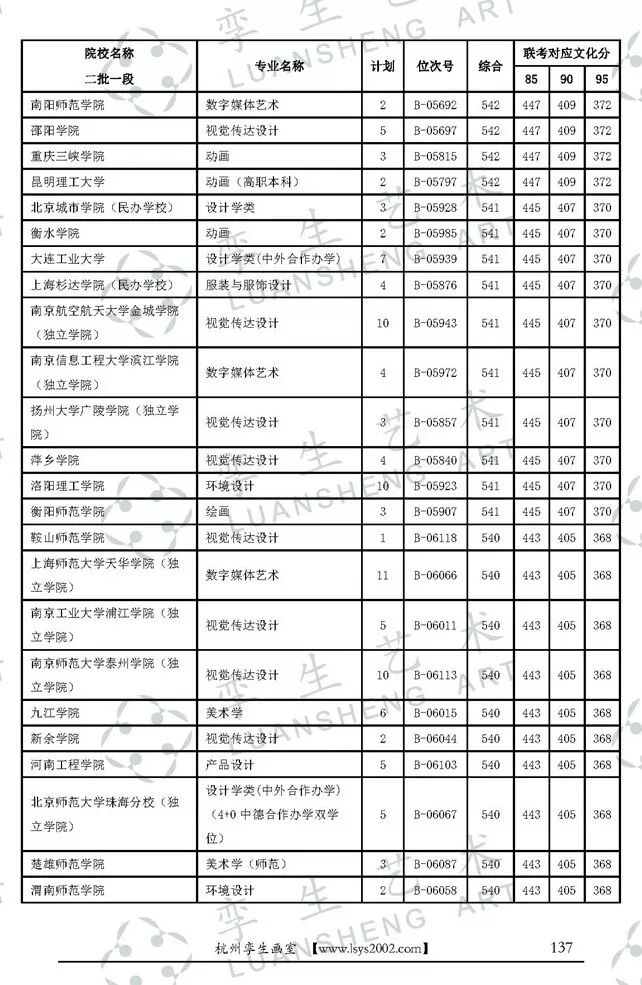 院校名称 二批一段 专业名称 计划 位次号 综合 联考对应文化分
85 90 95
南阳师范学院 数字媒体艺术 2 B-05692 542 447 409 372
邵阳学院 视觉传达设计 5 B-05697 542 447 409 372
重庆三峡学院 动画 3 B-05815 542 447 409 372
昆明理工大学 动画（高职本科） 2 B-05797 542 447 409 372
北京城市学院（民办学校） 设计学类 3 B-05928 541 445 407 370
衡水学院 动画 2 B-05985 541 445 407 370
大连工业大学 设计学类(中外合作办学) 7 B-05939 541 445 407 370
上海杉达学院（民办学校） 服装与服饰设计 4 B-05876 541 445 407 370
南京航空航天大学金城学院
（独立学院） 视觉传达设计 10 B-05943 541 445 407 370
南京信息工程大学滨江学院
（独立学院） 数字媒体艺术 4 B-05972 541 445 407 370
扬州大学广陵学院（独立学
院） 视觉传达设计 3 B-05857 541 445 407 370
萍乡学院 视觉传达设计 4 B-05840 541 445 407 370
洛阳理工学院 环境设计 10 B-05923 541 445 407 370
衡阳师范学院 绘画 3 B-05907 541 445 407 370
鞍山师范学院 视觉传达设计 1 B-06118 540 443 405 368
上海师范大学天华学院（独
立学院） 数字媒体艺术 11 B-06066 540 443 405 368
南京工业大学浦江学院（独
立学院） 视觉传达设计 5 B-06011 540 443 405 368
南京师范大学泰州学院（独
立学院） 视觉传达设计 10 B-06113 540 443 405 368
九江学院 美术学 6 B-06015 540 443 405 368
新余学院 视觉传达设计 2 B-06044 540 443 405 368
河南工程学院 产品设计 5 B-06103 540 443 405 368
北京师范大学珠海分校（独
立学院） 设计学类(中外合作办学)
（4+0 中德合作办学双学
位） 5 B-06067 540 443 405 368
楚雄师范学院 美术学（师范） 3 B-06087 540 443 405 368
渭南师范学院 环境设计 2 B-06058 540 443 405 368
杭州孪生画室 【www.lsys2002.com】 137
孪生艺术
LUANSHENG ART